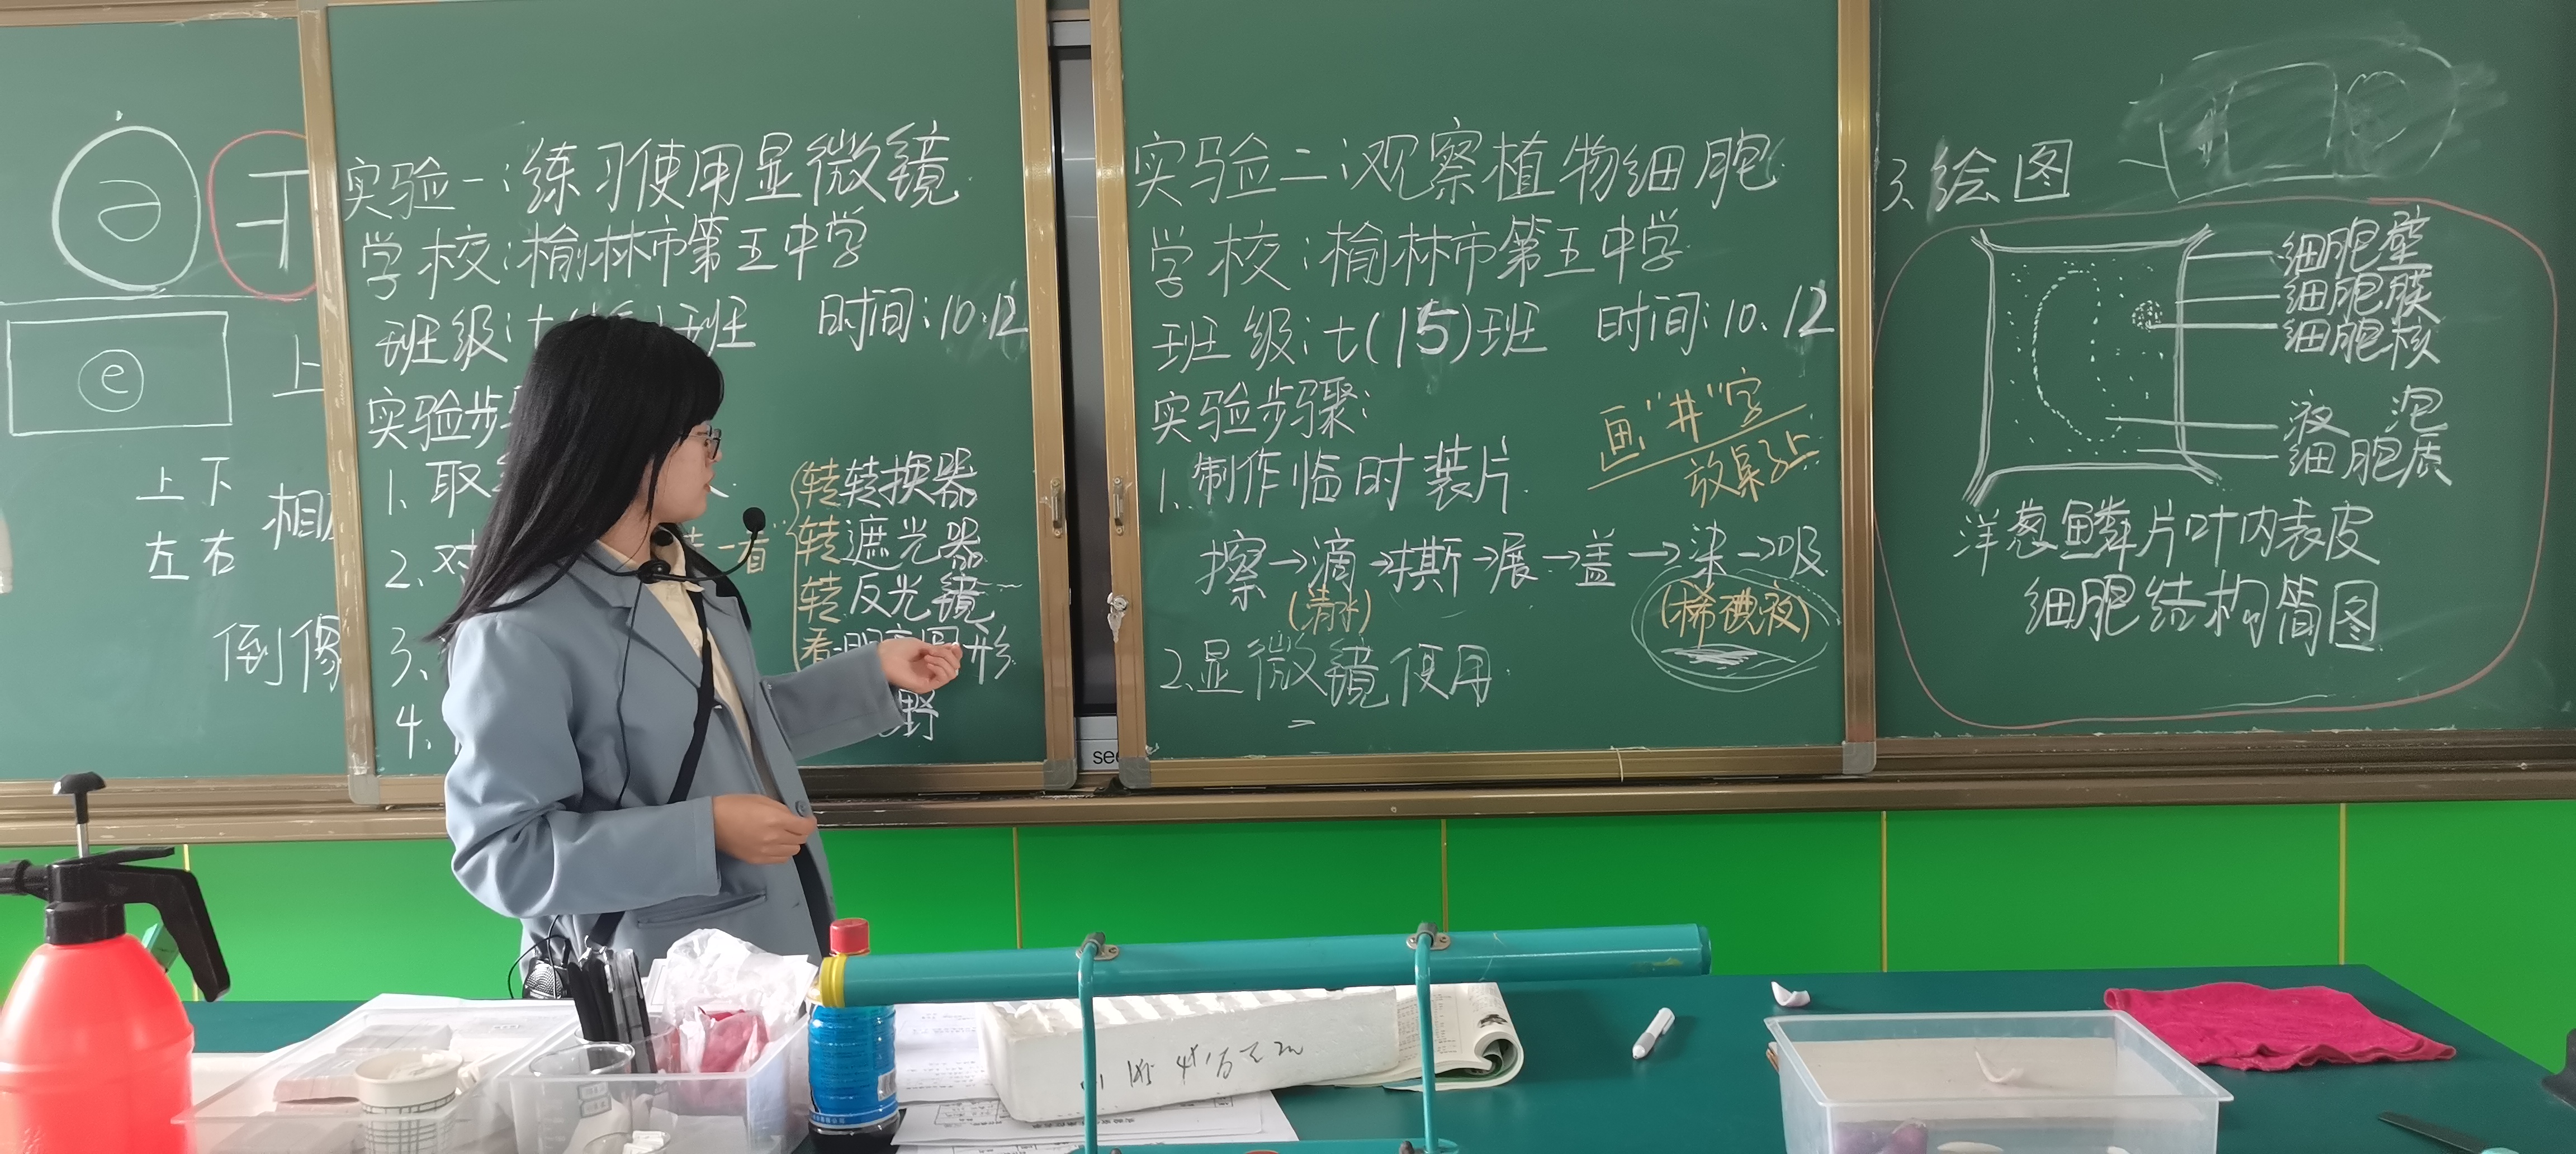 上
e
上下
左右
倒像
实验一:练习使用显微镜
学校:榆林市第五中学
班级: 班 时间:10.12
实验步
1. 取
2. 对 看
3.
4.
转转换器
转遮光器
转反光镜
看 形
野
实验二:观察植物细胞
学校:榆林市第五中学
班级:七(15)班 时间:10.12
实验步骤:
画"井"字
放桌子上
1.制作临时装片
擦→滴→撕→展→盖→染→吸
(清水) (稀碘液)
2.显微镜使用
see
3.绘图
细胞壁
细胞膜
细胞核
液泡
细胞质
洋葱鳞片叶内表皮
细胞结构简图